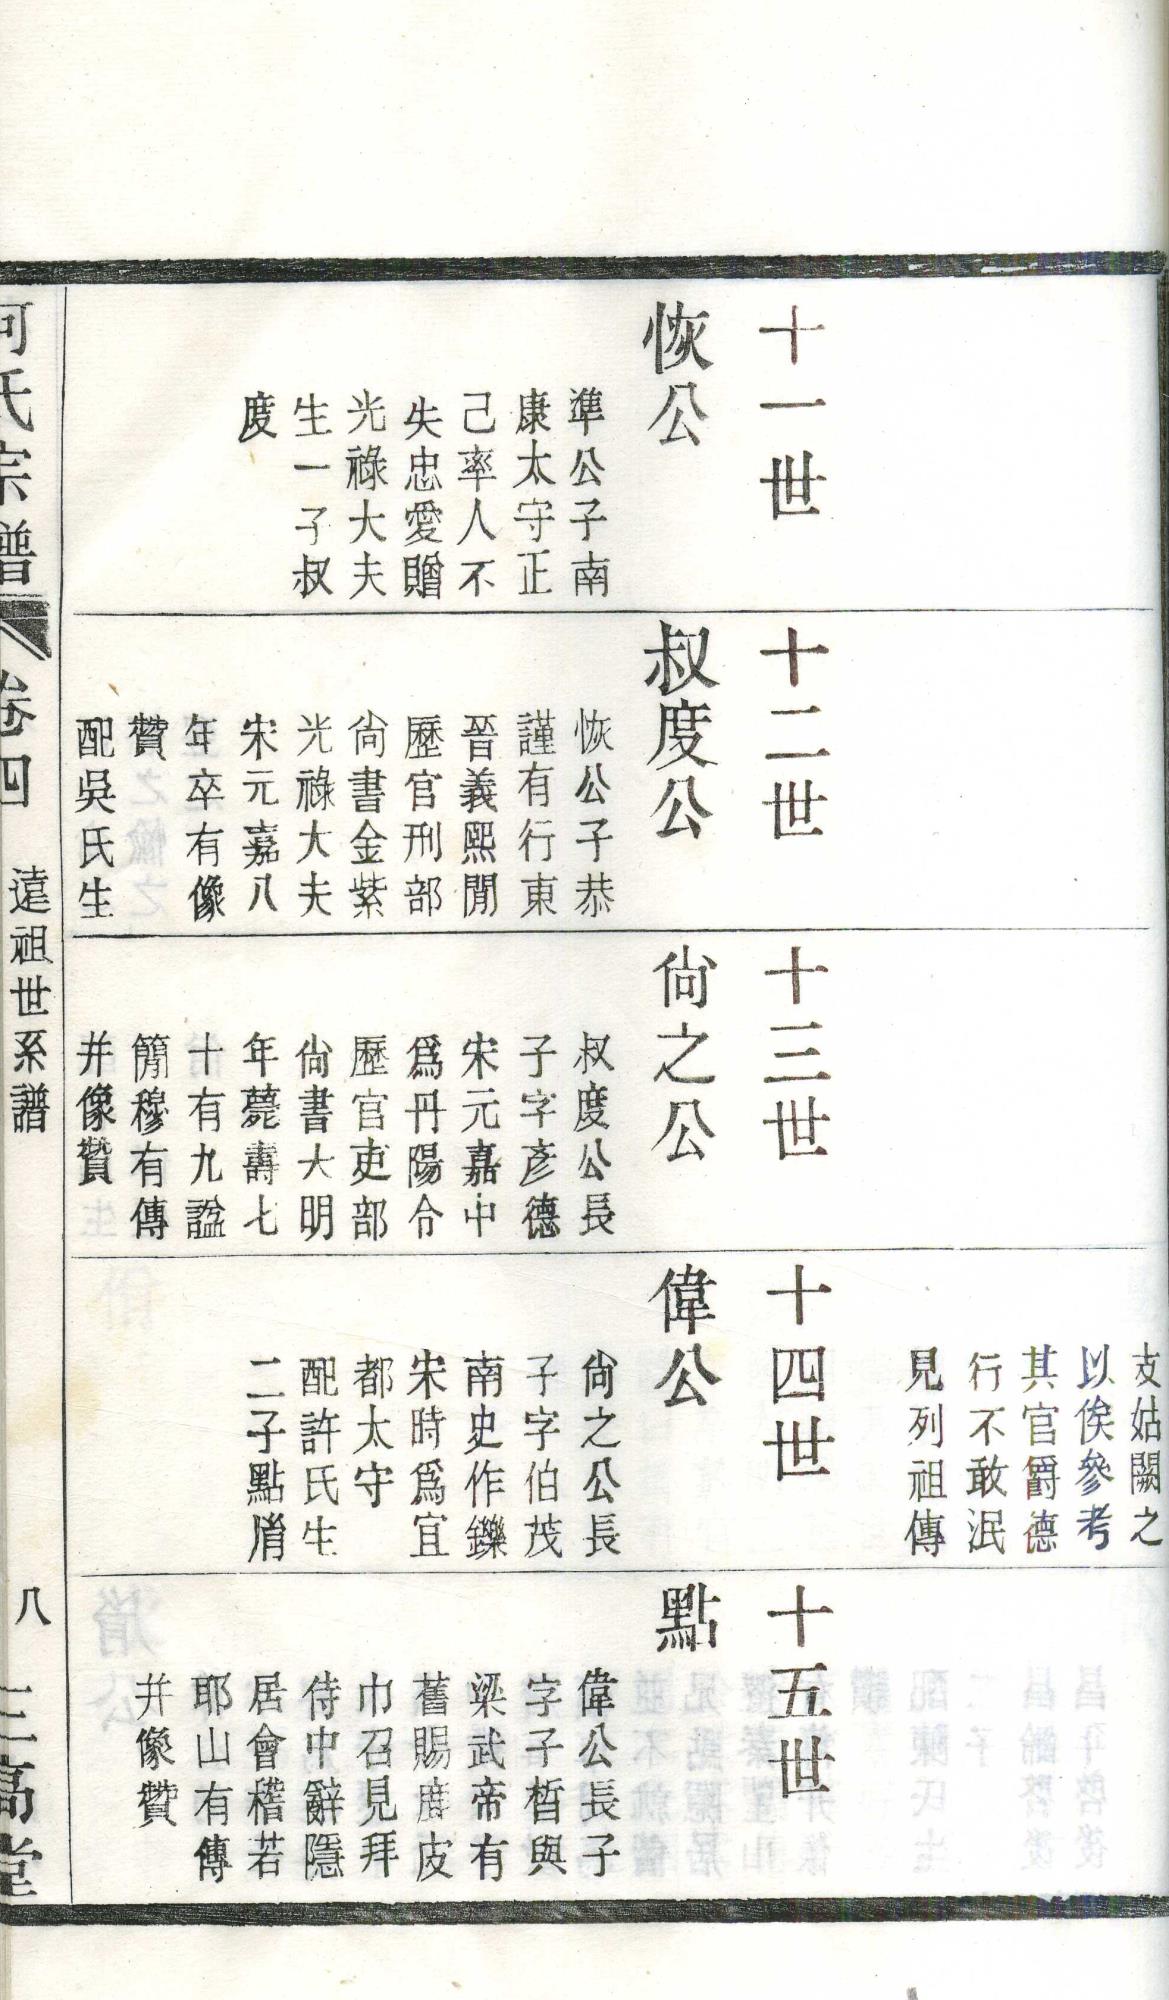 支姑闕之
以俟參考
其官爵德
行不敢泯
見列祖傳
十一世
恢公
準公子南
康太守正
己率人不
失忠愛贈
光祿大夫
生一子叔
度
十二世
叔度公
恢公子恭
謹有行東
晉義熙閒
歷官刑部
尙書金紫
光祿大夫
宋元嘉八
年卒有像
贊
配吳氏生
十三世
尙之公
叔度公長
子字彥德
宋元嘉中
爲丹陽令
歷官吏部
尙書大明
年薨壽七
十有九諡
簡穆有傳
并像贊
十四世
偉公
尙之公長
子字伯茂
南史作鑠
宋時爲宜
都太守
配許氏生
二子點㣲
十五世
點
偉公長子
字子晳與
梁武帝有
舊賜鹿皮
巾召見拜
侍中辭隱
居會稽若
耶山有傳
并像贊
何氏宗譜
卷四
遠祖世系譜
八
三高堂